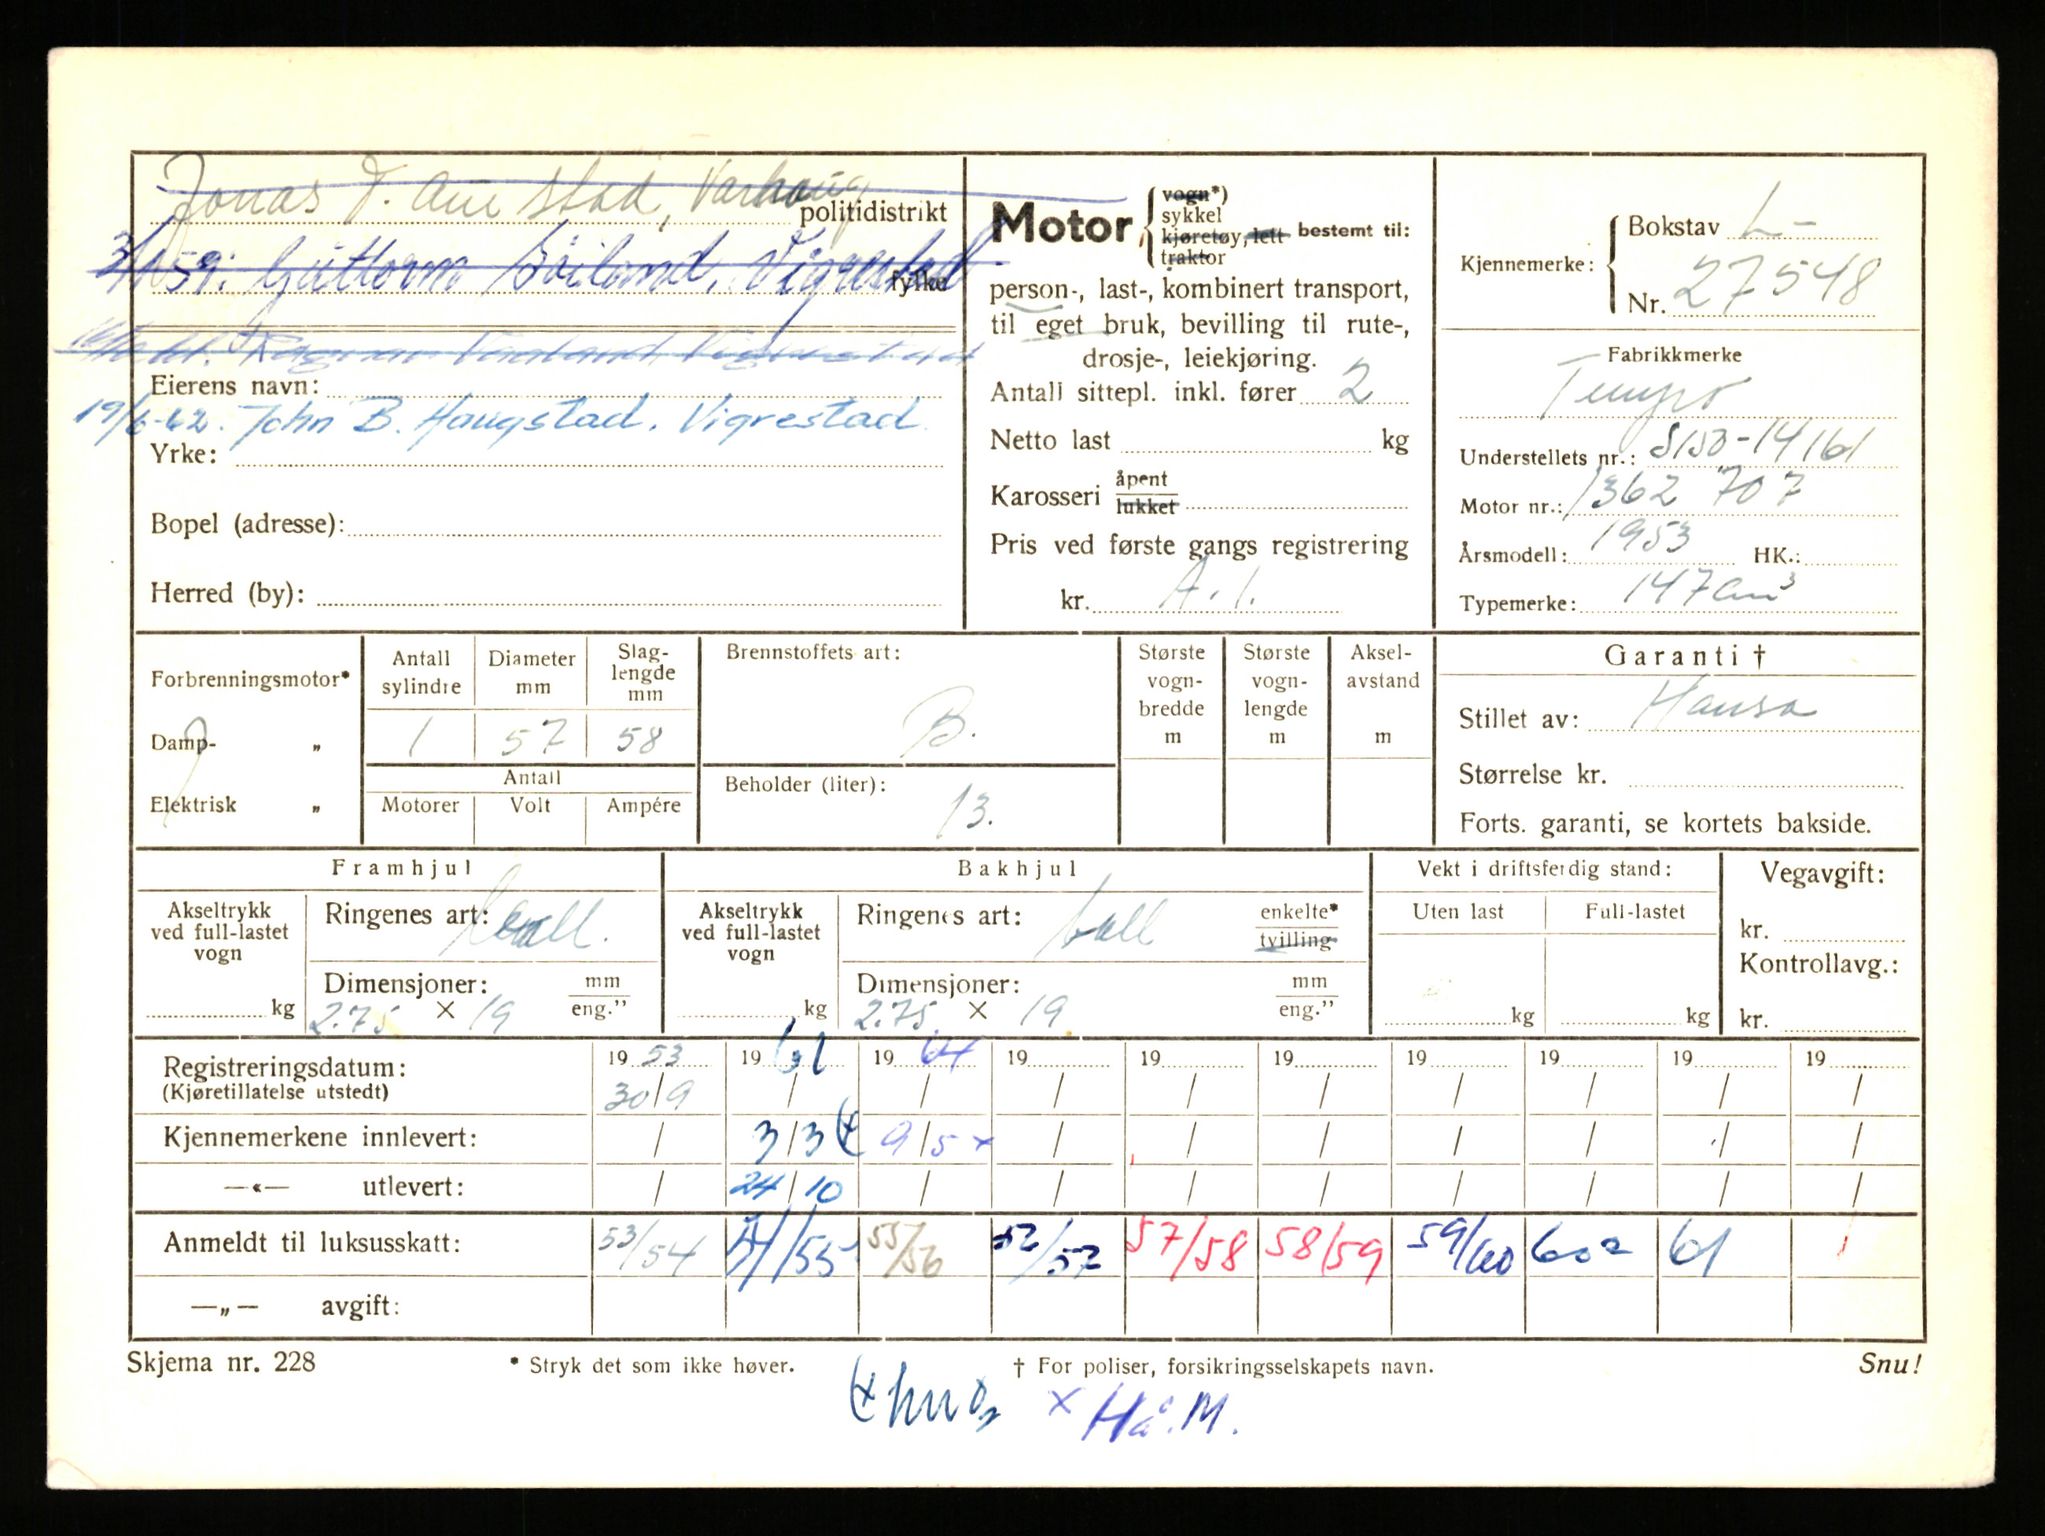 Jonas T. Aue stad, Varhaug politidistrikt
3/1 59: Guttorm Bøiland, Vigrestad fylke
Ragnar Vigrestad
Eierens navn:
19/6-62. John B. Haugstad, Vigrestad.
Yrke:
Bopel (adresse):
Herred (by):
Motor { vogn*)
sykkel
kjøretøy, lett
traktor
bestemt til:
person-, last-, kombinert transport,
til eget bruk, bevilling til rute-,
drosje-, leiekjøring.
Antall sittepl. inkl. fører 2
Netto last kg
Karosseri åpent
lukket
Pris ved første gangs registrering
kr. A. 1.
Kjennemerke: { Bokstav L-
Nr. 27548
Fabrikkmerke
Tempo
Understellets nr.: S150-14161
Motor nr.: 1362 707
Årsmodell: 1953 HK.:
Typemerke: 147 cm³
Forbrenningsmotor*
Damp- „
Elektrisk „
Antall sylindre 1
Diameter mm 57
Slaglengde mm 58
Antall
Motorer Volt Ampére
Brennstoffets art:
B.
Beholder (liter):
13.
Største vognbredde m
Største vognlengde m
Akselavstand m
Garanti †
Stillet av: Hansa
Størrelse kr.
Forts. garanti, se kortets bakside.
Framhjul
Akseltrykk
ved full-lastet
vogn
kg
Ringenes art: ball.
Dimensjoner: mm
2.75 × 19 eng."
Bakhjul
Akseltrykk
ved full-lastet
vogn
kg
Ringenes art: ball enkelte*
tvilling
Dimensjoner: mm
2.75 × 19 eng."
Vekt i driftsferdig stand:
Uten last Full-lastet
kg kg
Vegavgift:
kr.
Kontrollavg.:
kr.
Registreringsdatum: 19 53 19 61 19 64 19 19 19 19 19 19 19
(Kjøretillatelse utstedt) 30/9 / / / / / / / / /
Kjennemerkene innlevert: / 3/3 9/5 x / / / / / / /
—«— utlevert: / 24/10 / / / / / / / /
Anmeldt til luksusskatt: 53/54 54/55 55/56 57 57/58 58/59 59/60 60 61
—„— avgift:
Skjema nr. 228 * Stryk det som ikke høver. † For poliser, forsikringsselskapets navn. Snu!
x Hå. M.